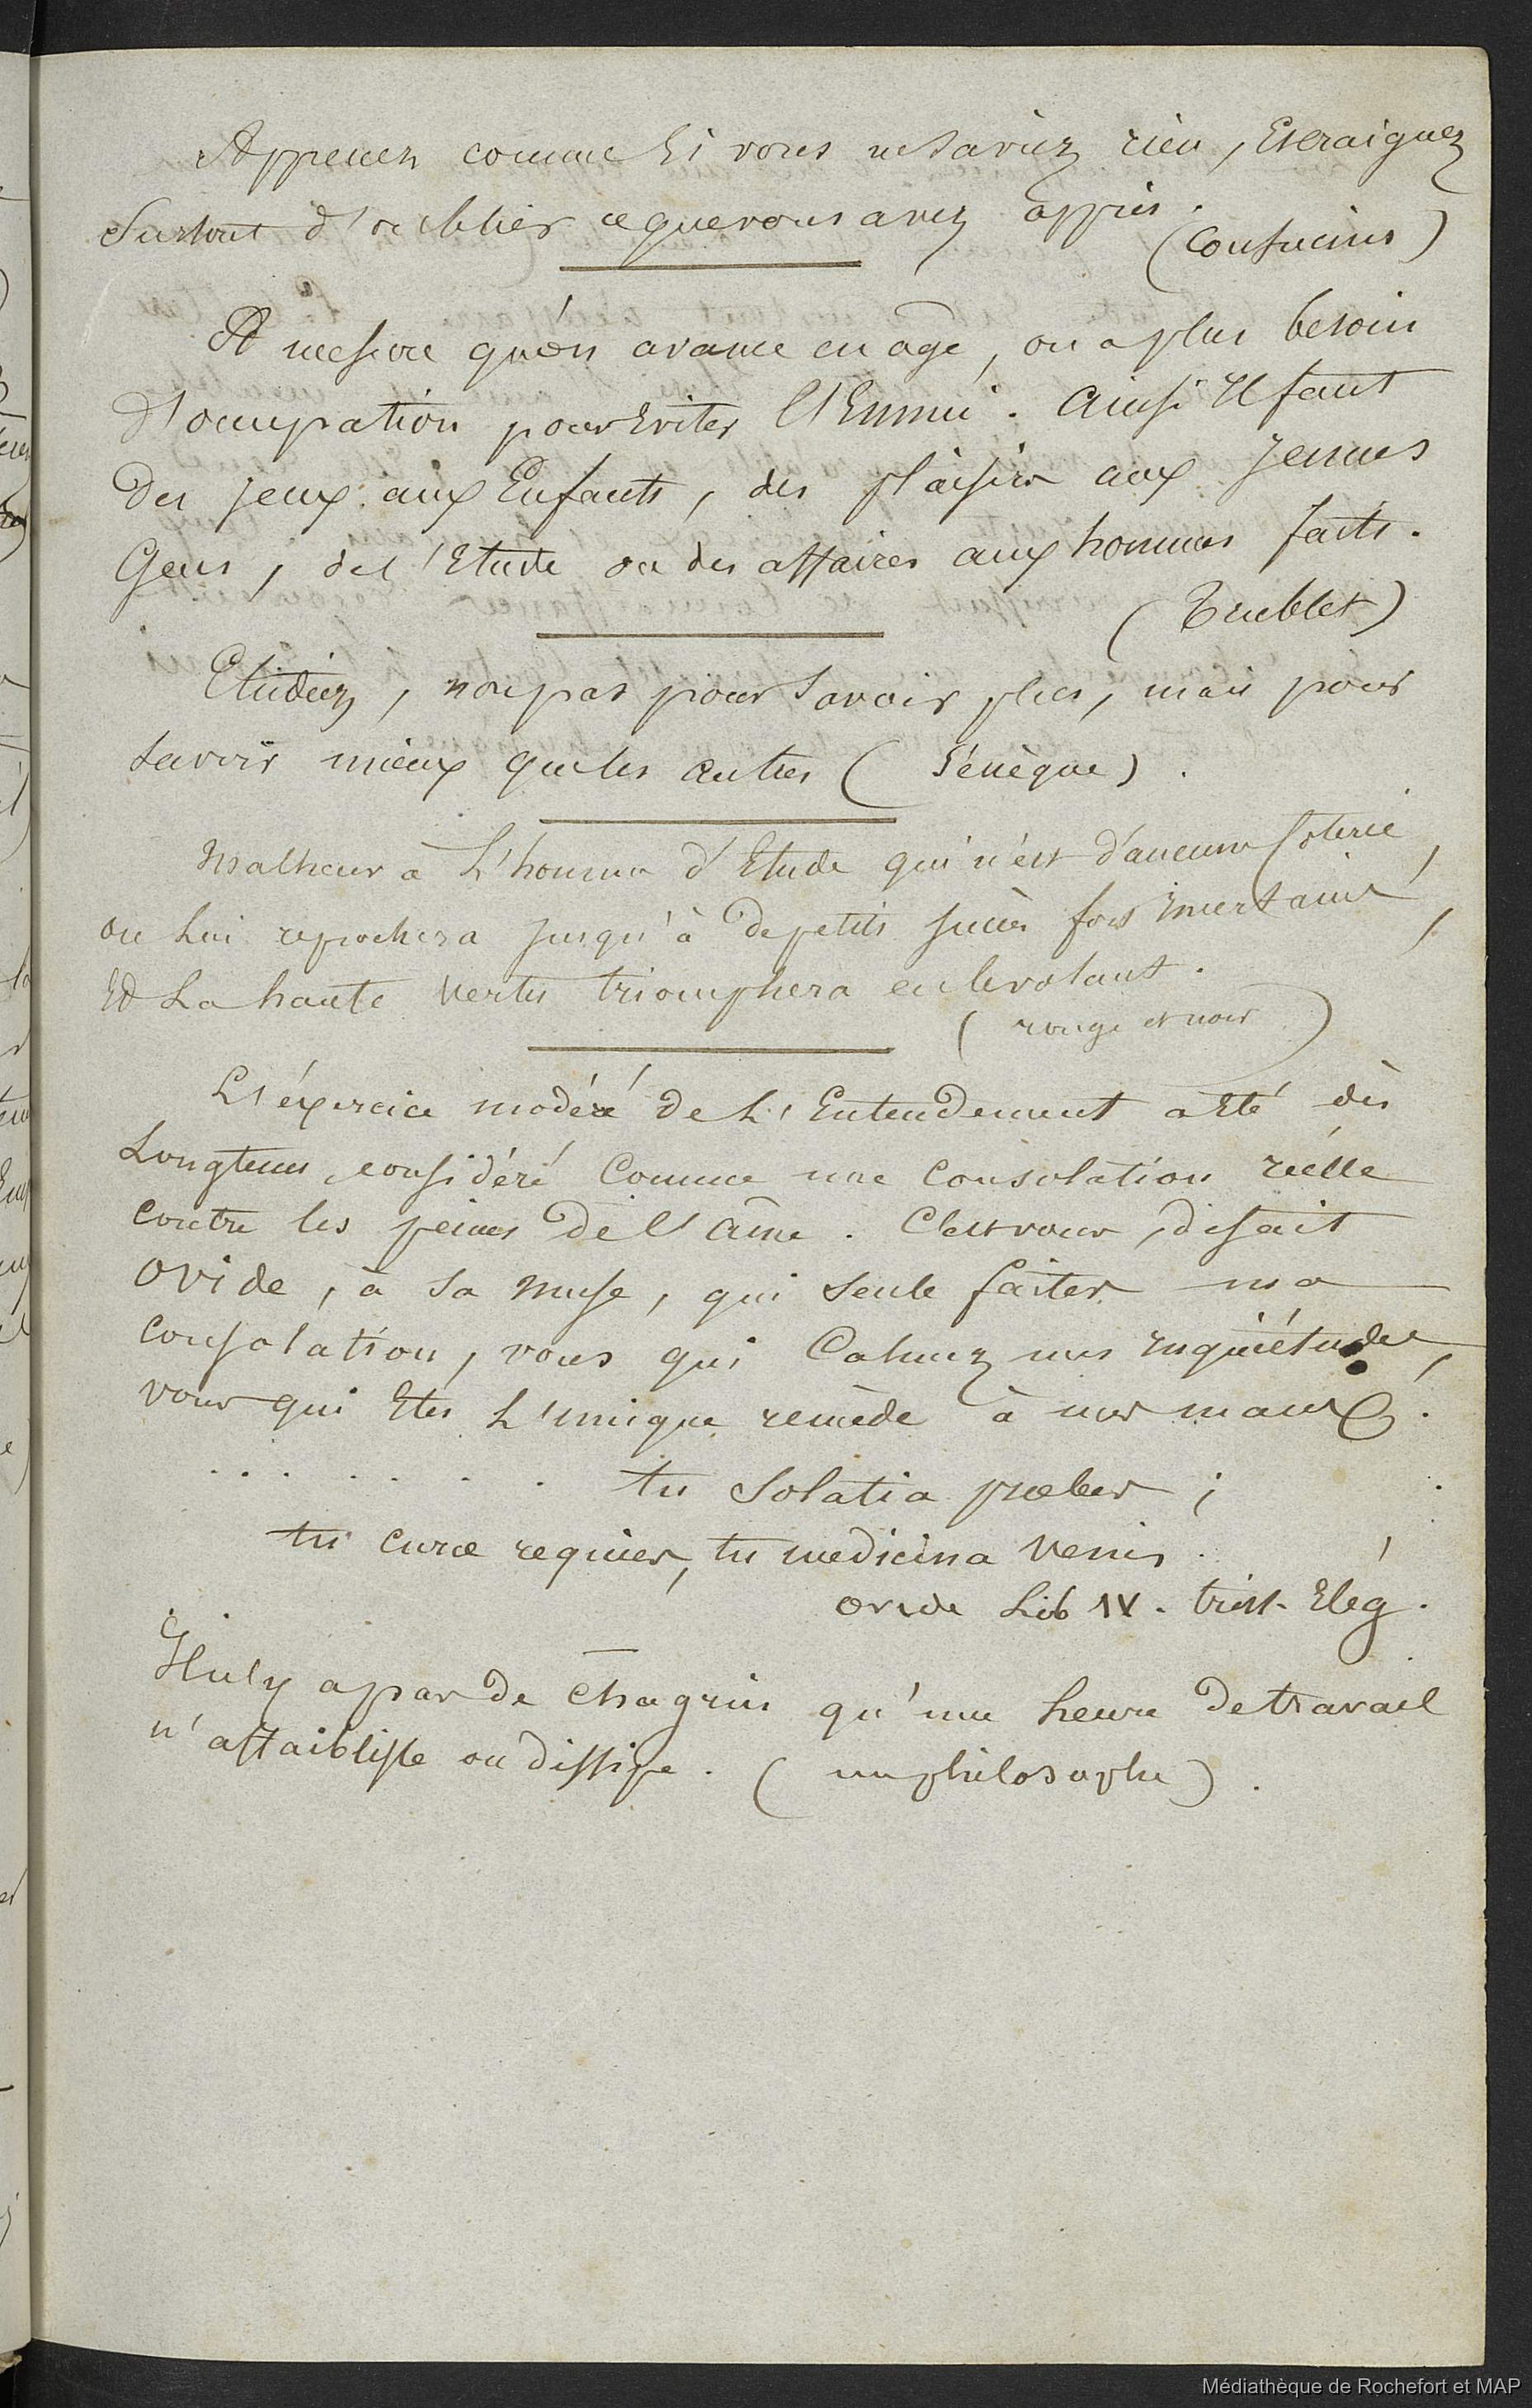 Apprenez comme si vous ne saviez rien, Et craignez
Surtout d'oublier ce que vous avez appris.
(Confucius)
A mesure qu'on avance en age, on a plus besoin
d'occupation pour Eviter l'Ennui. Ainsi Il faut
Des jeux aux Enfants, des plaisirs aux jeunes
Gens, de l'Etude ou des affaires aux hommes faits.
(Trublet)
Etudiez, non pas pour savoir plus, mais pour
savoir mieux que les autres (Sénèque).
Malheur à L'homme d'Etude qui n'est d'aucune Coterie,
on Lui reprochera jusqu'à de petits succès fort incertains,
Et La haute vertu triomphera en le volant.
(rouge et noir)
L'éxercice modéré de L'Entendement a Eté dès
Longtems considéré Comme une Consolation réélle
contre les peines De l'âme. C'est vous, disait
Ovide, à sa muse, qui seule faites ma
consolation, vous qui Calmez mes inquiétudes,
vous qui Etes L'unique remède à mes maux.
. . . . . . . tu solatia præbes ;
tu curæ requies, tu medicina venis.
ovide Lib IV. trist. Elég.
Il n'y a pas de chagrin qu'une heure de travail
n'affaiblisse ou dissipe. (un philosophe).
Médiathèque de Rochefort et MAP